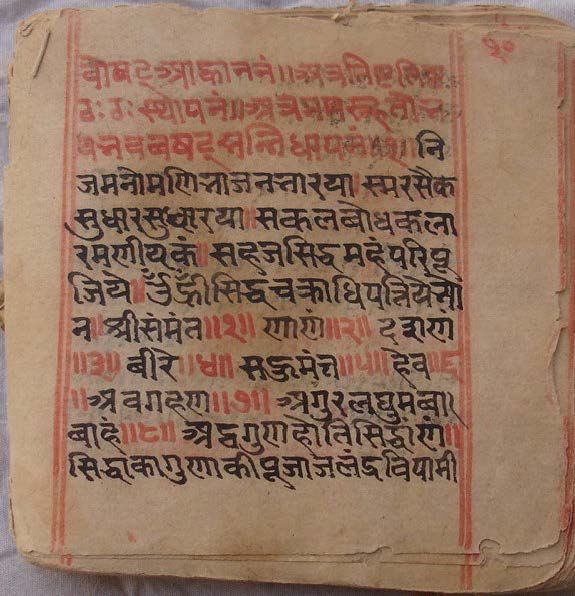 १०
वौषट् आकाननं॥ अत्र तिष्ठ तिष्ठ
ठः ठः स्थापनं॥ अत्र मम
वषट् सन्निधापनं॥ नि
जमनोमणिभाजनभारया॥ समरसैक
सुधारसुधारया॥ सकलबोधकला
रमणीयकं॥ सहजसिद्धमहं परिपू
जये॥ ॐ ह्रीं सिद्धचक्राधिपतिये
न॥ श्रीसंमंत॥१॥ णाणं॥२॥ दंसणं
॥३॥ बीरि॥४॥ सहुमंत॥५॥ हेव॥६
॥ अवगहण॥७॥ अगुरलघुमबा
बाहं॥८॥ अठगुणहोतिसिद्धाणं॥
सिद्धाकागुणाकीपूजाजलंद्रविपामी